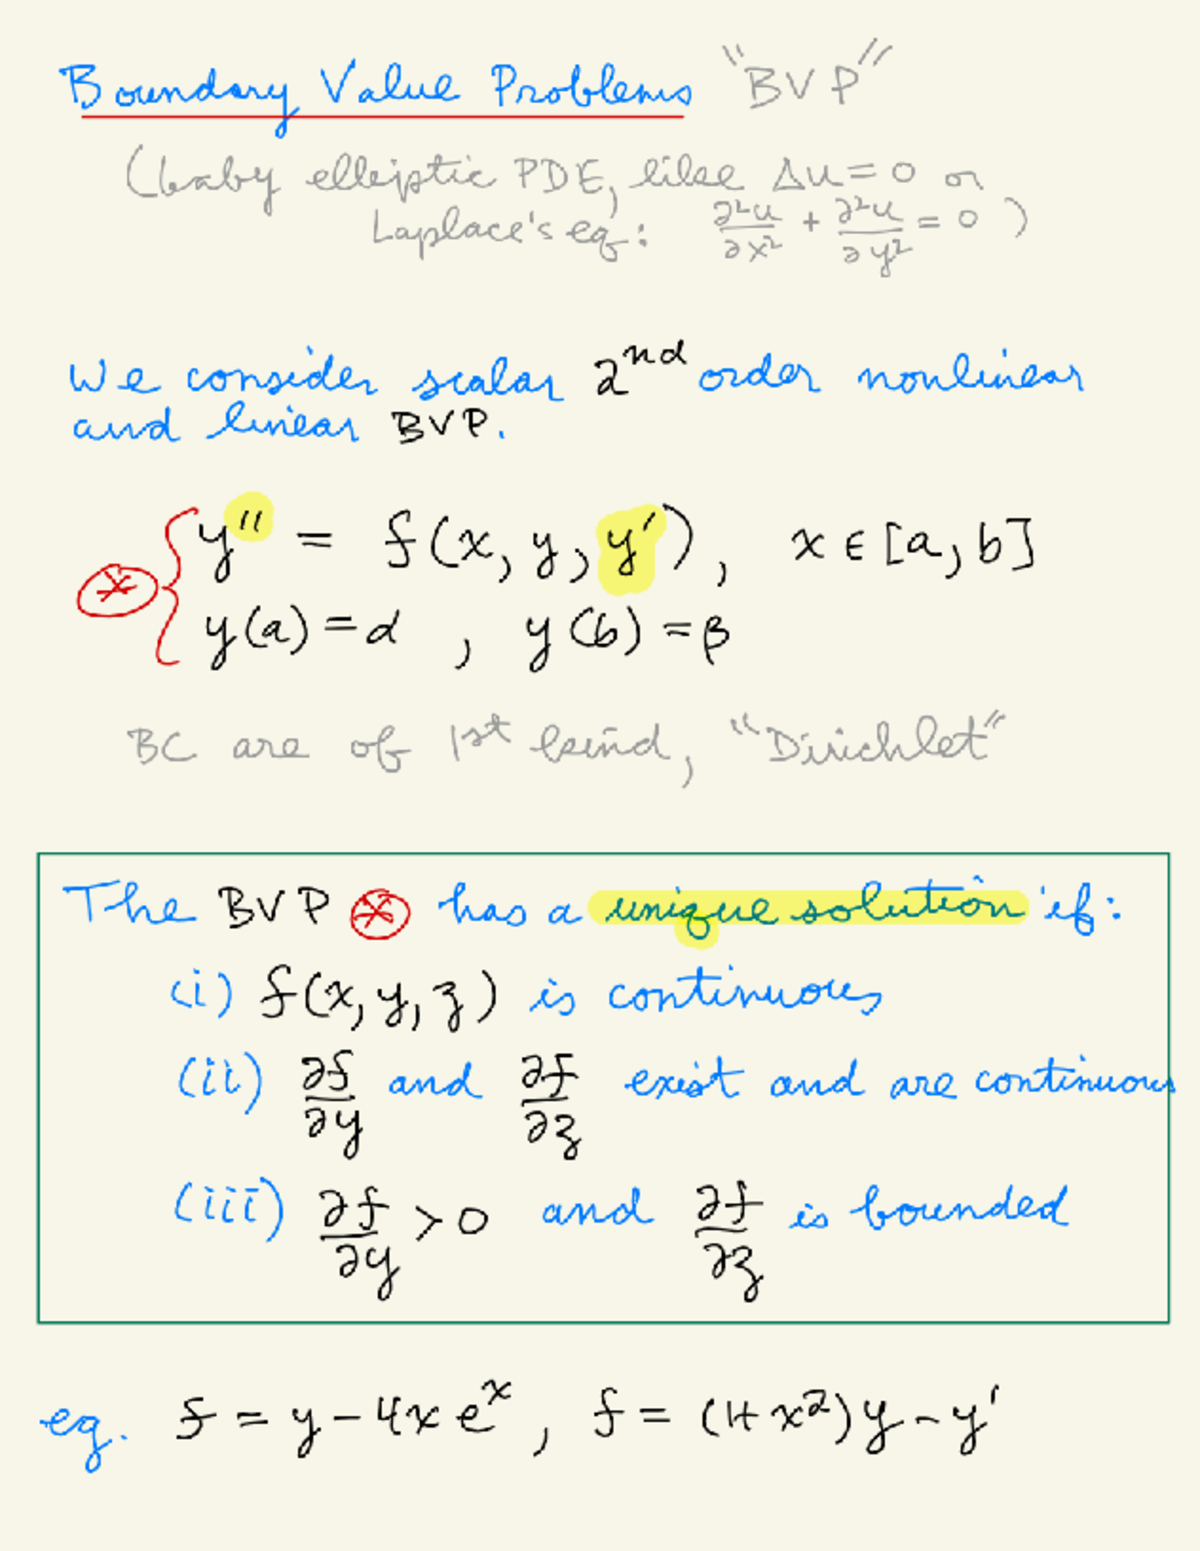 Boundary Value Problems "BVP"
(baby elliptic PDE, like Δu = 0 or
Laplace's eq: ∂²u/∂x² + ∂²u/∂y² = 0 )
We consider scalar 2nd order nonlinear
and linear BVP.
y'' = f(x, y, y'), x ∈ [a, b]
⊛ {
y(a) = α , y(b) = β
BC are of 1st kind, "Dirichlet"
The BVP ⊛ has a unique solution if:
(i) f(x, y, z) is continuous
(ii) ∂f/∂y and ∂f/∂z exist and are continuous
(iii) ∂f/∂y > 0 and ∂f/∂z is bounded
eg. f = y - 4x eˣ , f = (1+x²)y - y'